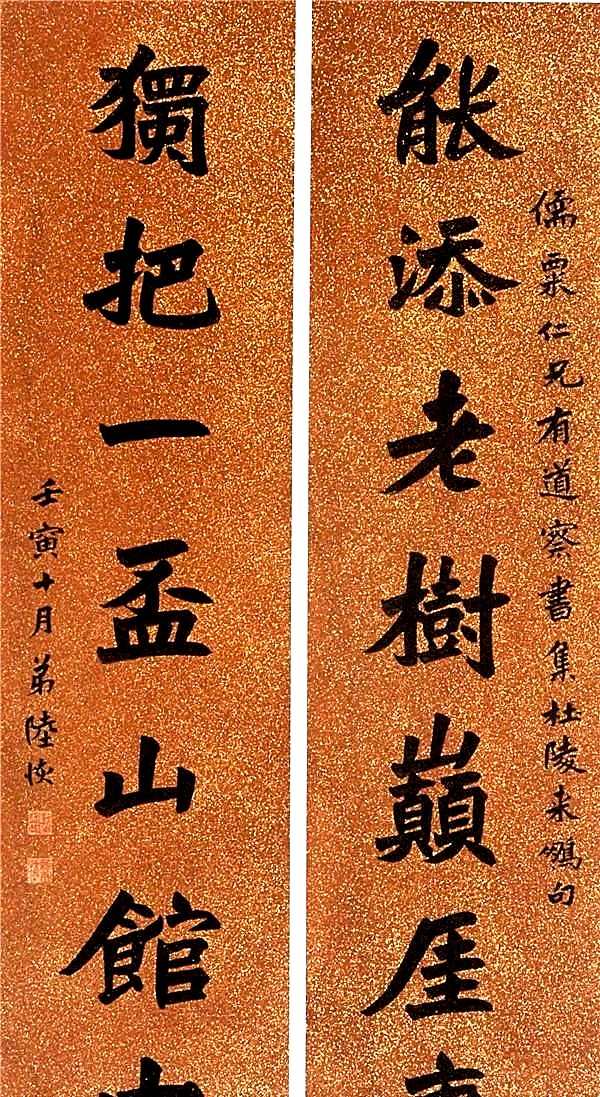 儒粟仁兄有道察書集杜陵朱鶴句
能添老樹巔厓
獨把一盃山館
壬寅十月弟陸恢